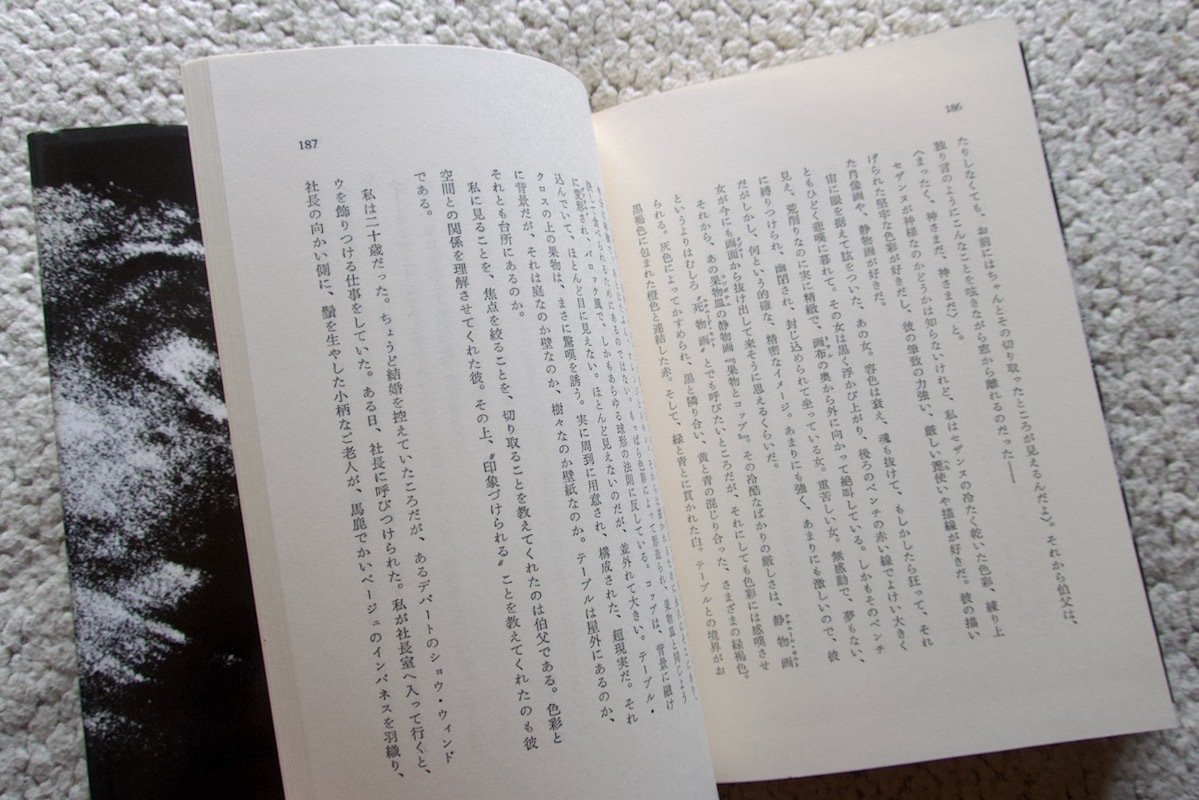 186
たりしなくても、お前にはちゃんとその切り取ったところが見えるんだよ〉。それから伯父は、
独り言のようにこんなことを呟きながら窓から離れるのだった――
〈まったく、神さまだ、神さまだ〉と。
セザンヌが神様なのかどうかは知らないけれど、私はセザンヌの冷たく乾いた色彩、練り上
げられた堅牢な色彩が好きだし、彼の筆致の力強い、厳しい鉋使いや描線が好きだ。彼の描い
た肖像画や、静物画が好きだ。
宙に眼を据えて肱をついた、あの女。容色は衰え、魂も抜けて、もしかしたら狂って、それ
ともひどく悲嘆に暮れて。その女は黒く浮かび上がり、後ろのベンチの赤い線でよけい大きく
見え、荒削りなのに実に精緻で、画布の奥から外に向かって絶叫している。しかもそのベンチ
に縛りつけられ、幽閉され、封じ込められて坐っている女。重苦しい女。無感動で、夢もない、
だがしかし、何という的確な、精密なイメージ。あまりにも強く、あまりにも激しいので、彼
女が今にも画面から抜け出して来そうに思えるくらいだ。
それから、あの果物皿の静物画『果物とコップ』。その冷酷なばかりの厳しさは、静物画
というよりはむしろ〝死物画〟とでも呼びたいところだが、それにしても色彩には感嘆させ
られる。灰色によってかすめられ、黒と隣り合い、黄と青の混じり合った、さまざまの緑褐色。
黒褐色に包まれた橙色と連結した赤。そして、緑と青とに貫かれた白。テーブルとの境界がお
187
良して食べられるためにあるのではない。もっぱら色彩によって形造られ、果物皿と同じよう
に変形され、バロック風で、しかもあらゆる球形の法則に反している。コップは、背景に融け
込んでいて、ほとんど目に見えない。ほとんど見えないのだが、並外れて大きい。テーブル・
クロスの上の果物は、まさに驚嘆を誘う。実に周到に用意され、構成された、超現実だ。それ
に背景だが、それは庭なのか壁なのか、樹々なのか壁紙なのか。テーブルは屋外にあるのか、
それとも台所にあるのか。
私に見ることを、焦点を絞ることを、切り取ることを教えてくれたのは伯父である。色彩と
空間との関係を理解させてくれた彼。その上、〝印象づけられる〟ことを教えてくれたのも彼
である。
私は二十歳だった。ちょうど結婚を控えていたころだが、あるデパートのショウ・ウィンド
ウを飾りつける仕事をしていた。ある日、社長に呼びつけられた。私が社長室へ入って行くと、
社長の向かい側に、鬚を生やした小柄なご老人が、馬鹿でかいベージュのインバネスを羽織り、